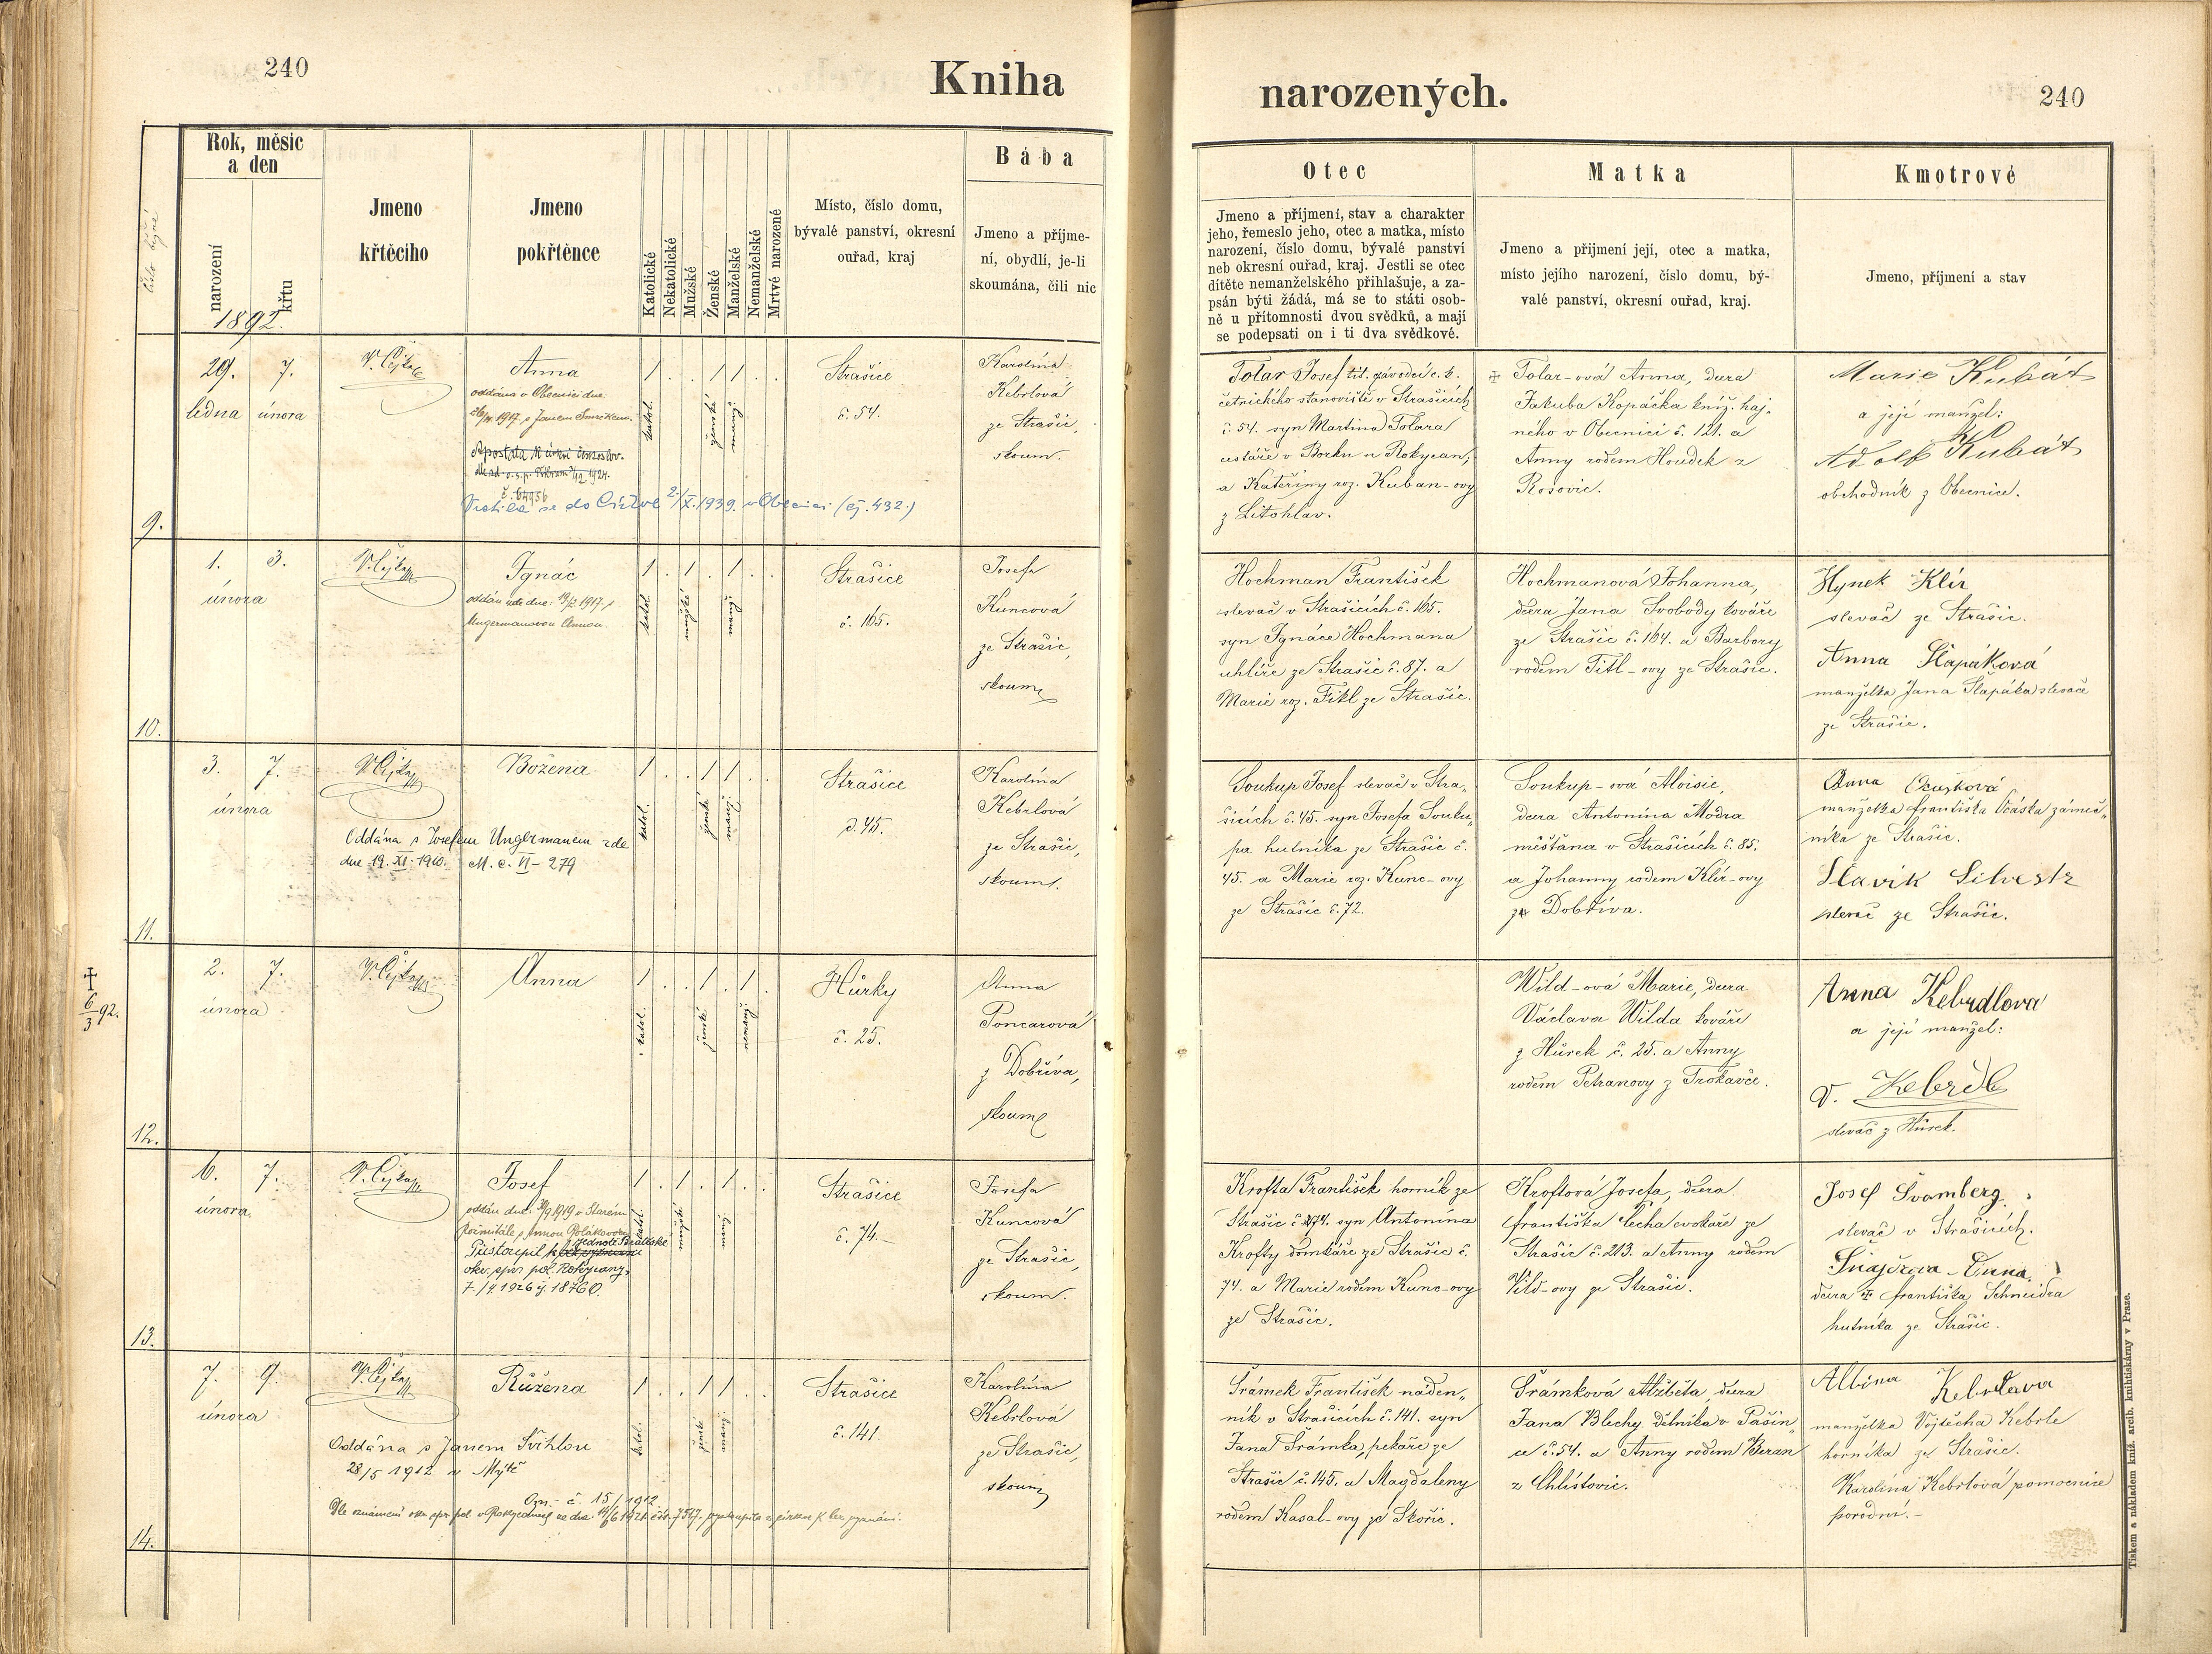 240
Kniha
narozených.
240
číslo
Rok, měsíc
a den
narození
křtu
1892.
Jmeno
křtěcího
Jmeno
pokřtěnce
Katolické
Nekatolické
Mužské
Ženské
Manželské
Nemanželské
Mrtvé narozené
Místo, číslo domu,
bývalé panství, okresní
ouřad, kraj
Bába
Jmeno a příjme-
ní, obydlí, je-li
skoumána, čili nic
Otec
Jmeno a příjmení, stav a charakter
jeho, řemeslo jeho, otec a matka, místo
narození, číslo domu, bývalé panství
neb okresní ouřad, kraj. Jestli se otec
dítěte nemanželského přihlašuje, a za-
psán býti žádá, má se to státi osob-
ně u přítomnosti dvou svědků, a mají
se podepsati on i ti dva svědkové.
Matka
Jmeno a přijmení její, otec a matka,
místo jejího narození, číslo domu, bý-
valé panství, okresní ouřad, kraj.
Kmotrové
Jmeno, příjmení a stav
9.
29.
ledna
7.
února
V. Čejka
Anna
oddána v Obecnici dne
1917 s Janem
Vrátila se do Církve 2/X.1939. v Obecnici (čj. 432.)
1 . . 1 1 . .
katol.
ženské
manž.
Strašice
č. 54.
Karolína
Kebrlová
ze Strašic,
skoum.
Tolar Josef tit. závodčí c. k.
četnického stanoviště v Strašicích
č. 54. syn Martina Tolara
cestáře v Borku u Rokycan,
a Kateřiny roz. Kuban-ovy
z Litohlav.
Tolar-ová Anna, dcera
Jakuba Kopáčka kníž. haj-
ného v Obecnici č. 121. a
Anny rodem Houdek z
Rosovic.
Marie Kubát
a její manžel:
Adolf Kubát
obchodník z Obecnice.
10.
1.
února
3.
V. Čejka
Ignác
oddán zde dne 1917 s
Ungermanovou Annou.
1 . 1 . 1 . .
katol.
mužské
manž.
Strašice
č. 165.
Josefa
Kuncová
ze Strašic,
skoum.
Hochman František
slevač v Strašicích č. 165.
syn Ignáce Hochmana
uhlíře ze Strašic č. 87. a
Marie roz. Fikl ze Strašic.
Hochmanová Johanna,
dcera Jana Svobody kováře
ze Strašic č. 164. a Barbory
rodem Titl-ovy ze Strašic.
Hynek Klír
slevač ze Strašic.
Anna Šlapáková
manželka Jana Šlapáka slevače
ze Strašic.
11.
3.
února
7.
V. Čejka
Božena
Oddána s Josefem Ungermanem zde
dne 19. XI. 1910. M. c. VI - 279
1 . . 1 1 . .
katol.
ženské
manž.
Strašice
č. 45.
Karolína
Kebrlová
ze Strašic,
skoum.
Soukup Josef slevač v Stra-
šicích č. 45. syn Josefa Souku-
pa hutníka ze Strašic č.
45. a Marie roz. Kunc-ovy
ze Strašic č. 72.
Soukup-ová Aloisie,
dcera Antonína Modra
měšťana v Strašicích č. 85.
a Johanny rodem Klír-ovy
z Dobříva.
Anna
manželka Františka Ocáska zámeč-
níka ze Strašic.
Slavík Silvestr
slevač ze Strašic.
✝
6/3 92.
12.
2.
února
7.
V. Čejka
Anna
1 . . 1 . 1 .
katol.
ženské
nemanž.
Hůrky
č. 25.
Anna
Poncarová
z Dobříva,
skoum.
Wild-ová Marie, dcera
Václava Wilda kováře
z Hůrek č. 25. a Anny
rodem Petranovy z Trokavce.
Anna Kebrdlova
a její manžel:
V. Kebrdle
slevač z Hůrek.
13.
6.
února
7.
V. Čejka
Josef
oddán dne 1919 v Starém
Rožmitále s Annou Polákovou
Přistoupil k jednotě Bratrské
okr. spr. pol. Rokycany
7/4 1926 čj. 18760.
1 . 1 . 1 . .
katol.
mužské
manž.
Strašice
č. 74.
Josefa
Kuncová
ze Strašic,
skoum.
Krofta František horník ze
Strašic č. 74. syn Antonína
Krofty domkáře ze Strašic č.
74. a Marie rodem Kunc-ovy
ze Strašic.
Kroftová Josefa, dcera
Františka Čecha cvokaře ze
Strašic č. 213. a Anny rodem
Vild-ovy ze Strašic.
Josef Švamberg
slevač v Strašicích.
Šnajdrova Anna
dcera ✝ Františka Schneidra
hutníka ze Strašic.
14.
7.
února
9.
V. Čejka
Růžena
Oddána s Janem Švihlou
28/5 1912 v Mýtě
Ozn. č. 15/1912
Dle oznámení okr. spr. pol. v Rokycanech ze dne 1921 č. 7517, vystoupila z církve k bez vyznání.
1 . . 1 1 . .
katol.
ženské
manž.
Strašice
č. 141.
Karolína
Kebrlová
ze Strašic,
skoum.
Šrámek František náden-
ník v Strašicích č. 141. syn
Jana Šrámka, pekaře ze
Strašic č. 145. a Magdaleny
rodem Kasal-ovy ze Skořic.
Šrámková Alžběta dcera
Jana Blechy dělníka v Pašin-
ce č. 54. a Anny rodem Beran
z Chlístovic.
Albina Kebrlava
manželka Vojtěcha Kebrle
horníka ze Strašic.
Karolína Kebrlová pomocnice
porodní.
Tiskem a nákladem kníž. arcib. knihtiskárny v Praze.